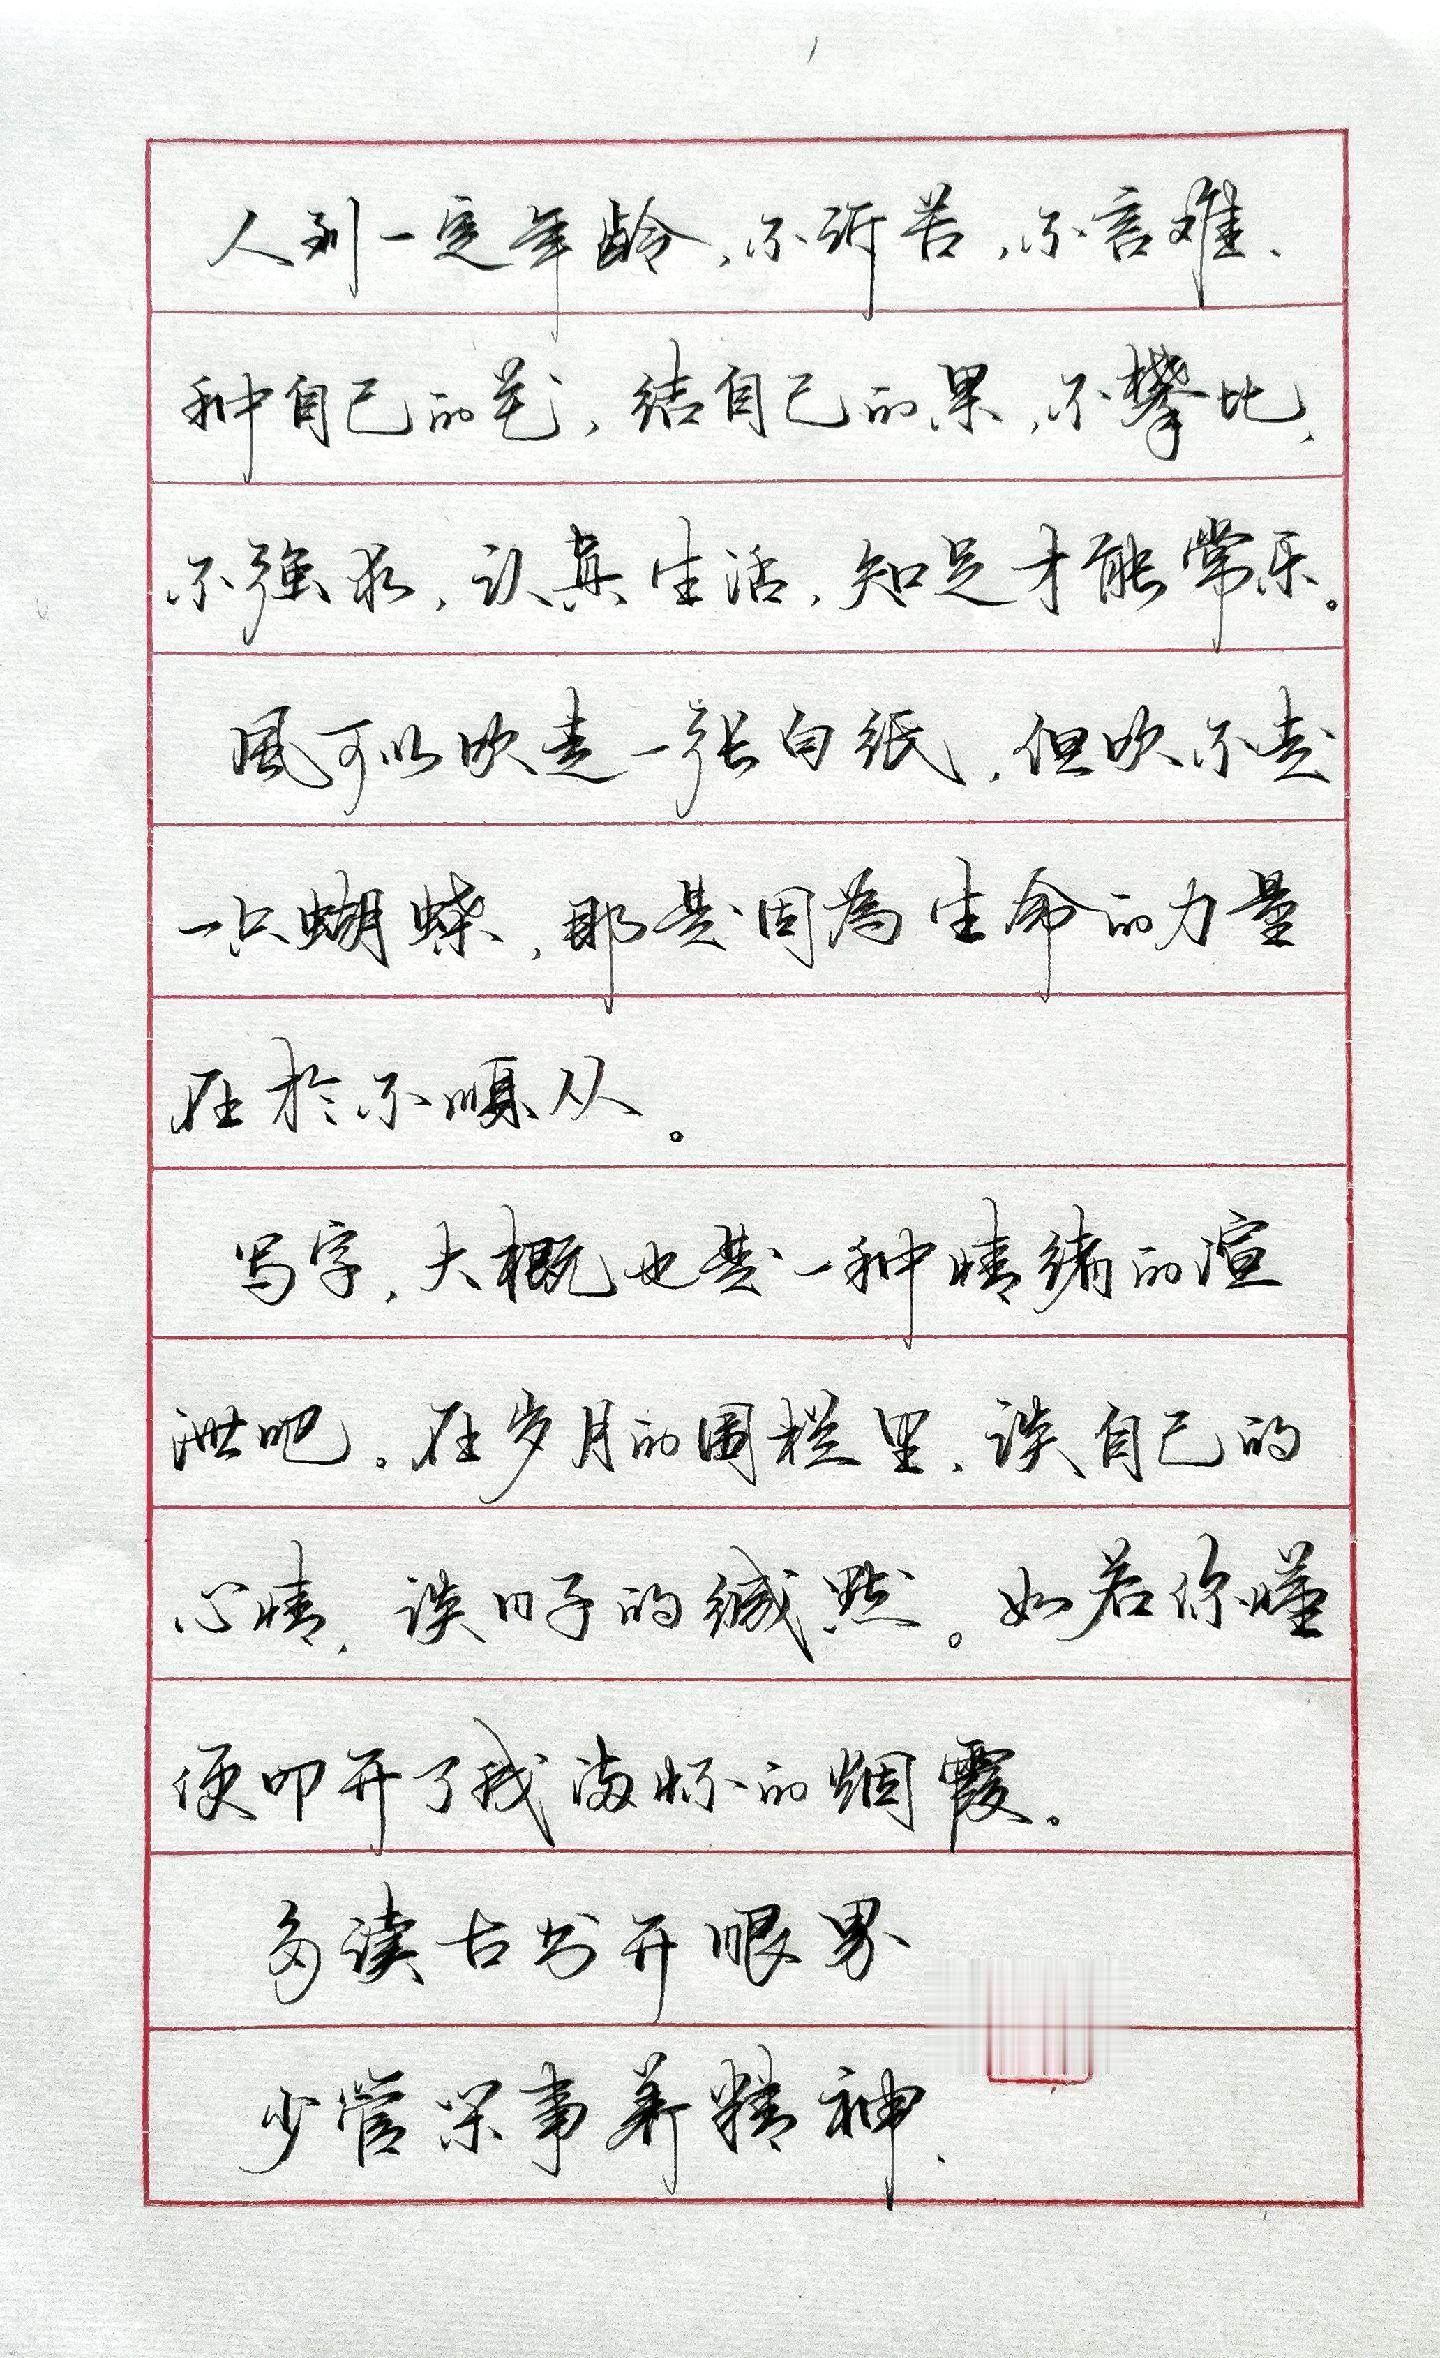 人到一定年龄，不诉苦，不言难、
种自己的花，结自己的果，不攀比，
不强求，认真生活，知足才能常乐。
风可以吹走一张白纸，但吹不走
一只蝴蝶，那是因为生命的力量
在于不顺从。
写字，大概也是一种情绪的渲
泄吧。在岁月的围栏里，谈自己的
心情，谈日子的缄默。如若你懂
便叩开了我满怀的烟霞。
多读古书开眼界
少管闲事养精神、